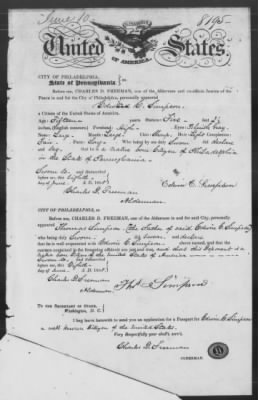 June 10
8195
United States.
CITY OF PHILADELPHIA,
State of Pennsylvania, ss
Before me, CHARLES D. FREEMAN, one of the Aldermen and ex-officio Justice of the
Peace in and for the City of Philadelphia, personally appeared
Edwin C. Simpson
a Citizen of the United States of America.
Age, Stature, Five feet
(English measure) Forehead, High Eyes, Gray
Nose, Large Mouth, Large Chin, Hair, Light Complexion,
Fair Face, Long who being duly Sworn declare
say that he is a native born Citizen of Philadelphia
in the State of Pennsylvania
Sworn to and subscribed
before me, this Eighth
day of June A.D. 185
Charles D. Freeman
Alderman.
Edwin C. Simpson
CITY OF PHILADELPHIA, ss
Before me, CHARLES D. FREEMAN, one of the Aldermen in and for said City, personally
appeared Thomas Simpson, The father of said Edwin C. Simpson
who being duly Sworn declare
that he is well acquainted with Edwin C. Simpson above named, and that the
contents of the foregoing affidavit are true, and that said Deponent is a
native born Citizen of the United States of America
Sworn to and subscribed
before me, this Eighth
day of June A.D. 185
Charles D. Freeman
Alderman.
Thos Simpson
TO THE SECRETARY OF STATE,
Washington, D. C.
I beg leave herewith to send you an application for a Passport for Edwin C. Simpson
a well known Citizen of the United States.
Very Respectfully your obd't serv't,
Charles D. Freeman
ALDERMAN.